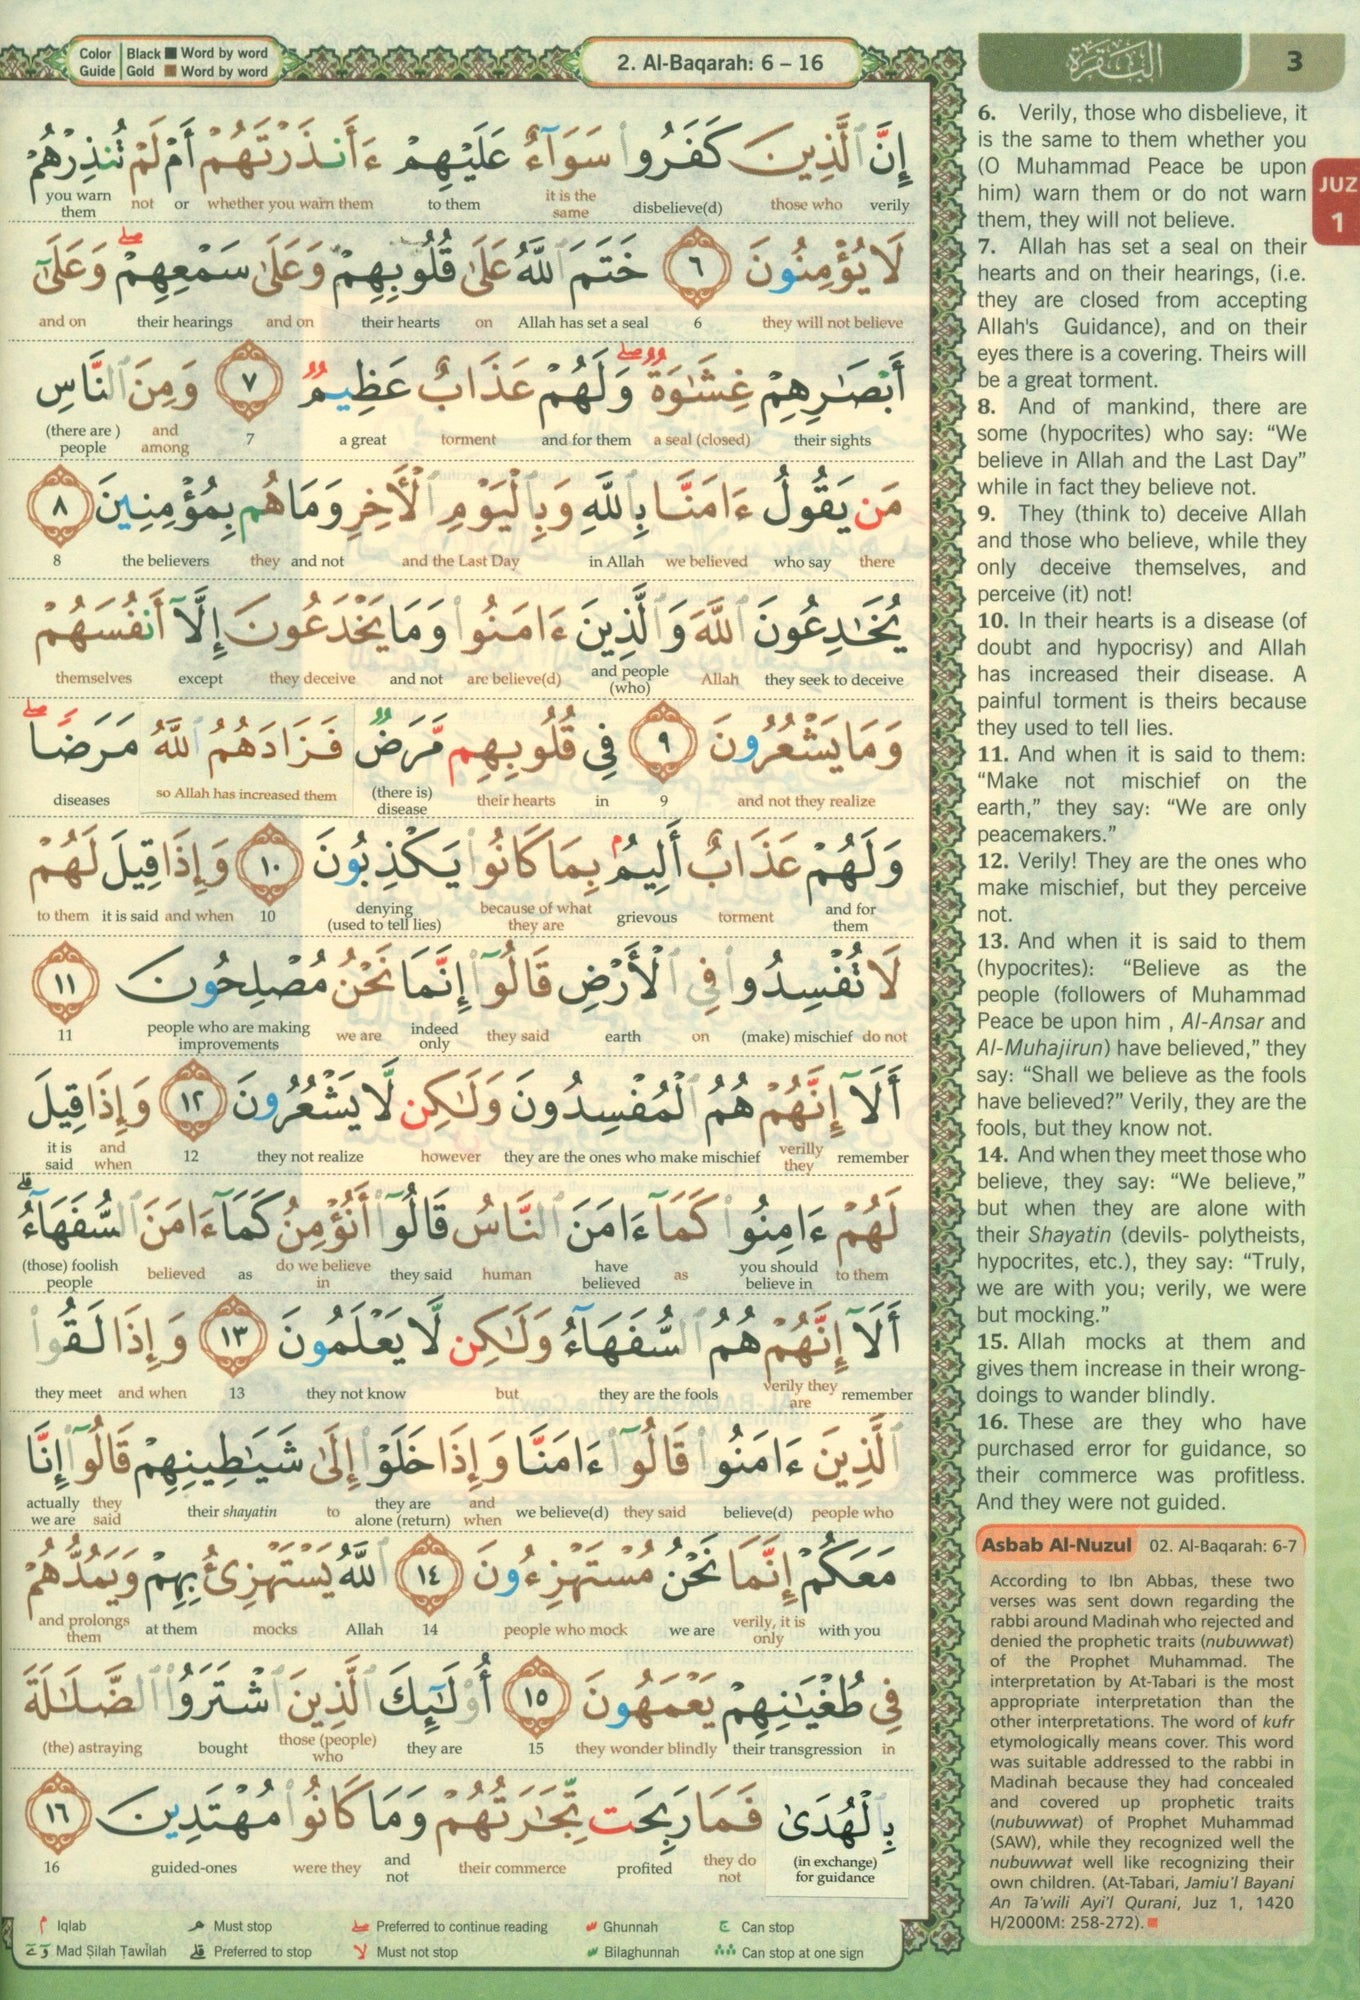 Color Guide
Black ■ Word by word
Gold ■ Word by word
2. Al-Baqarah: 6 – 16
البقرة
3
JUZ
1
إِنَّ ٱلَّذِينَ كَفَرُوا۟ سَوَآءٌ عَلَيْهِمْ ءَأَنذَرْتَهُمْ أَمْ لَمْ تُنذِرْهُمْ
verily those who disbelieve(d) it is the same to them whether you warn them or not you warn them
لَا يُؤْمِنُونَ ٦ خَتَمَ ٱللَّهُ عَلَىٰ قُلُوبِهِمْ وَعَلَىٰ سَمْعِهِمْ ۖ وَعَلَىٰٓ
they will not believe 6 Allah has set a seal on their hearts and on their hearings and on
أَبْصَٰرِهِمْ غِشَٰوَةٌ ۖ وَلَهُمْ عَذَابٌ عَظِيمٌ ٧ وَمِنَ ٱلنَّاسِ
their sights a seal (closed) and for them torment a great 7 and among (there are ) people
مَن يَقُولُ ءَامَنَّا بِٱللَّهِ وَبِٱلْيَوْمِ ٱلْءَاخِرِ وَمَا هُم بِمُؤْمِنِينَ ٨
there who say we believed in Allah and the Last Day and not they the believers 8
يُخَٰدِعُونَ ٱللَّهَ وَٱلَّذِينَ ءَامَنُوا۟ وَمَا يَخْدَعُونَ إِلَّآ أَنفُسَهُمْ
they seek to deceive Allah and people (who) are believe(d) and not they deceive except themselves
وَمَا يَشْعُرُونَ ٩ فِى قُلُوبِهِم مَّرَضٌ فَزَادَهُمُ ٱللَّهُ مَرَضًا ۖ
and not they realize 9 in their hearts (there is) disease so Allah has increased them diseases
وَلَهُمْ عَذَابٌ أَلِيمٌۢ بِمَا كَانُوا۟ يَكْذِبُونَ ١٠ وَإِذَا قِيلَ لَهُمْ
and for them torment grievous because of what they are denying (used to tell lies) 10 and when it is said to them
لَا تُفْسِدُوا۟ فِى ٱلْأَرْضِ قَالُوٓا۟ إِنَّمَا نَحْنُ مُصْلِحُونَ ١١
do not (make) mischief on earth they said indeed only we are people who are making improvements 11
أَلَآ إِنَّهُمْ هُمُ ٱلْمُفْسِدُونَ وَلَٰكِن لَّا يَشْعُرُونَ ١٢ وَإِذَا قِيلَ
remember verilly they they are the ones who make mischief however they not realize 12 and when it is said
لَهُمْ ءَامِنُوا۟ كَمَآ ءَامَنَ ٱلنَّاسُ قَالُوٓا۟ أَنُؤْمِنُ كَمَآ ءَامَنَ ٱلسُّفَهَآءُ ۗ
to them you should believe in as have believed human they said do we believe in as believed (those) foolish people
أَلَآ إِنَّهُمْ هُمُ ٱلسُّفَهَآءُ وَلَٰكِن لَّا يَعْلَمُونَ ١٣ وَإِذَا لَقُوا۟
remember verily they are they are the fools but they not know 13 and when they meet
ٱلَّذِينَ ءَامَنُوا۟ قَالُوٓا۟ ءَامَنَّا وَإِذَا خَلَوْا۟ إِلَىٰ شَيَٰطِينِهِمْ قَالُوٓا۟ إِنَّا
people who believe(d) they said we believe(d) and when they are alone (return) to their shayatin they said actually we are
مَعَكُمْ إِنَّمَا نَحْنُ مُسْتَهْزِءُونَ ١٤ ٱللَّهُ يَسْتَهْزِئُ بِهِمْ وَيَمُدُّهُمْ
with you verily, it is only we are people who mock 14 Allah mocks at them and prolongs them
فِى طُغْيَٰنِهِمْ يَعْمَهُونَ ١٥ أُو۟لَٰٓئِكَ ٱلَّذِينَ ٱشْتَرَوُا۟ ٱلضَّلَٰلَةَ
in their transgression they wonder blindly 15 they are those (people) who bought (the) astraying
بِٱلْهُدَىٰ فَمَا رَبِحَت تِّجَٰرَتُهُمْ وَمَا كَانُوا۟ مُهْتَدِينَ ١٦
(in exchange) for guidance they do not profited their commerce and not were they guided-ones 16
Iqlab
Must stop
Preferred to continue reading
Ghunnah
Can stop
Mad Ṣilah Ṭawīlah
Preferred to stop
Must not stop
Bilaghunnah
Can stop at one sign
6. Verily, those who disbelieve, it
is the same to them whether you
(O Muhammad Peace be upon
him) warn them or do not warn
them, they will not believe.
7. Allah has set a seal on their
hearts and on their hearings, (i.e.
they are closed from accepting
Allah's Guidance), and on their
eyes there is a covering. Theirs will
be a great torment.
8. And of mankind, there are
some (hypocrites) who say: “We
believe in Allah and the Last Day”
while in fact they believe not.
9. They (think to) deceive Allah
and those who believe, while they
only deceive themselves, and
perceive (it) not!
10. In their hearts is a disease (of
doubt and hypocrisy) and Allah
has increased their disease. A
painful torment is theirs because
they used to tell lies.
11. And when it is said to them:
“Make not mischief on the
earth,” they say: “We are only
peacemakers.”
12. Verily! They are the ones who
make mischief, but they perceive
not.
13. And when it is said to them
(hypocrites): “Believe as the
people (followers of Muhammad
Peace be upon him , Al-Ansar and
Al-Muhajirun) have believed,” they
say: “Shall we believe as the fools
have believed?” Verily, they are the
fools, but they know not.
14. And when they meet those who
believe, they say: “We believe,”
but when they are alone with
their Shayatin (devils- polytheists,
hypocrites, etc.), they say: “Truly,
we are with you; verily, we were
but mocking.”
15. Allah mocks at them and
gives them increase in their wrong-
doings to wander blindly.
16. These are they who have
purchased error for guidance, so
their commerce was profitless.
And they were not guided.
Asbab Al-Nuzul 02. Al-Baqarah: 6-7
According to Ibn Abbas, these two
verses was sent down regarding the
rabbi around Madinah who rejected and
denied the prophetic traits (nubuwwat)
of the Prophet Muhammad. The
interpretation by At-Tabari is the most
appropriate interpretation than the
other interpretations. The word of kufr
etymologically means cover. This word
was suitable addressed to the rabbi in
Madinah because they had concealed
and covered up prophetic traits
(nubuwwat) of Prophet Muhammad
(SAW), while they recognized well the
nubuwwat well like recognizing their
own children. (At-Tabari, Jamiu'l Bayani
An Ta'wili Ayi'l Qurani, Juz 1, 1420
H/2000M: 258-272).